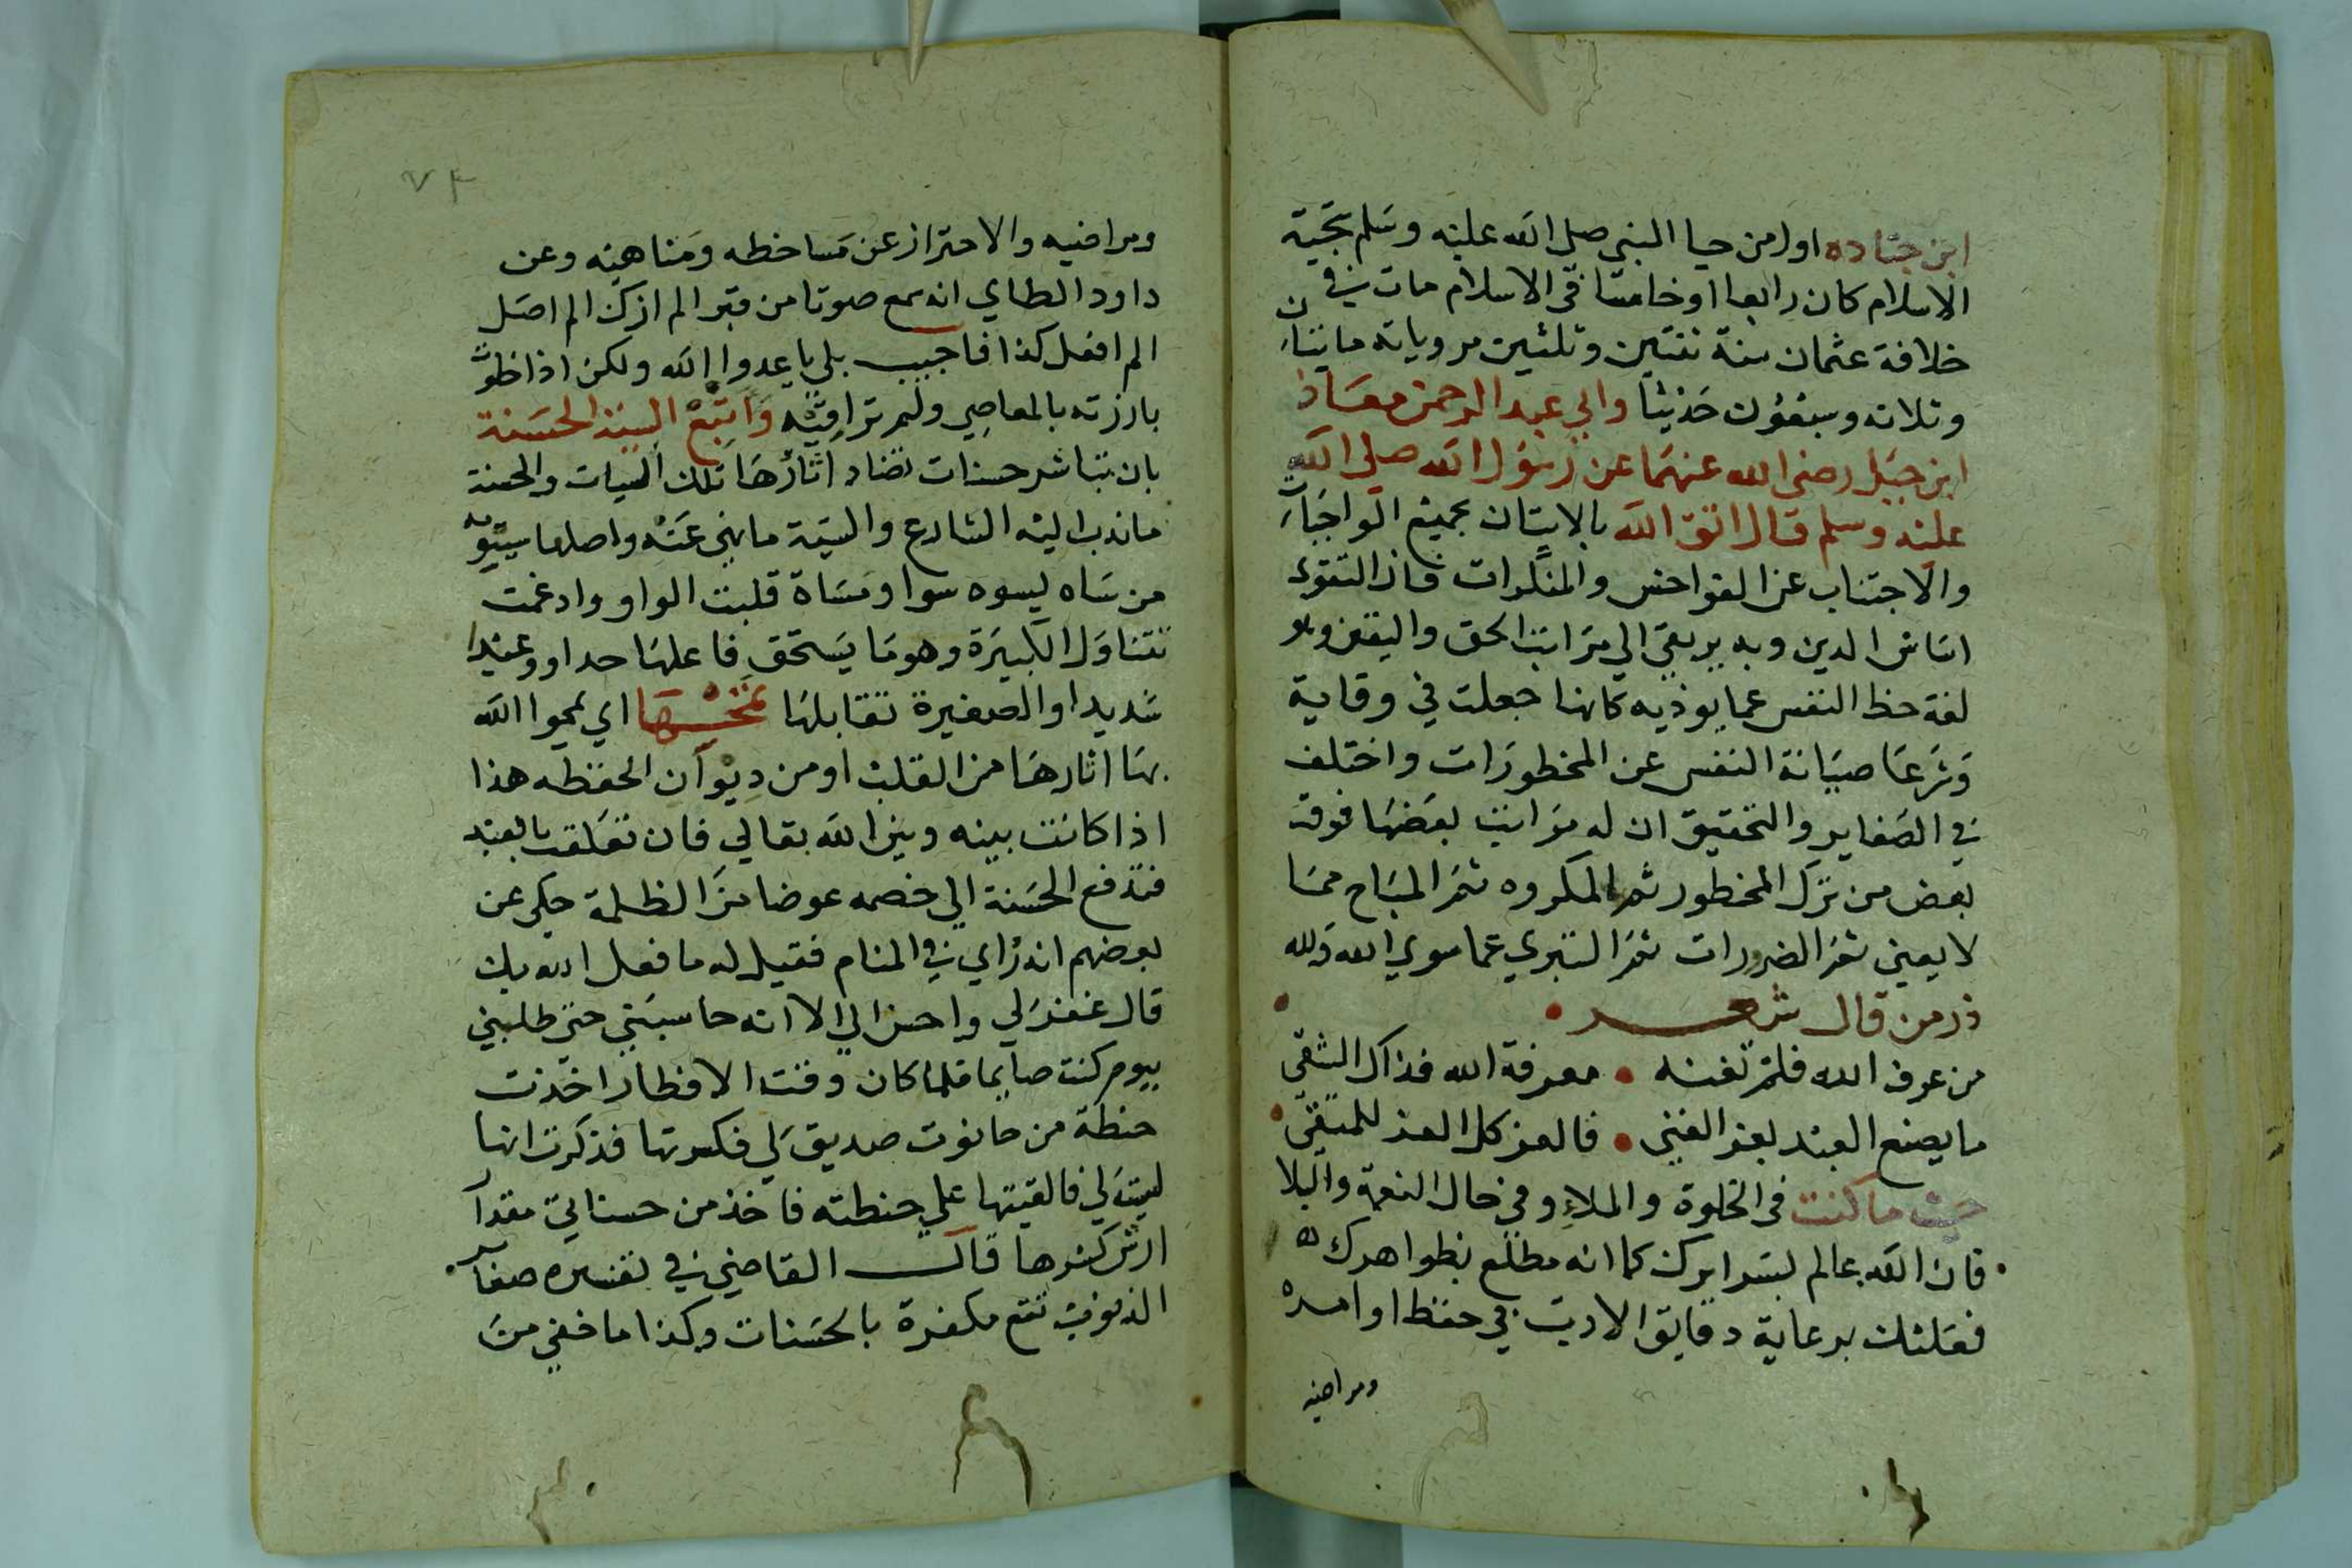 ابن جناده اول من حيا النبي صلى الله عليه وسلم بتحية
الاسلام كان رابعا او خامسا في الاسلام مات في
خلافة عثمان سنة ثنتين وثلثين مروياته مايتان
وثلاثه وسبعون حديثا وابي عبد الرحمن معاذ
ابن جبل رضي الله عنهما عن رسول الله صلى الله
عليه وسلم قال اتق الله بالاتيان بجميع الواجبات
والاجتناب عن الفواحش والمنكرات فان التقوى
اساس الدين وبه يرتقي الي مراتب الحق واليقين وهو
لغة حفظ النفس عما يوذيه كانها جعلت في وقاية
وشرعا صيانة النفس عن المحظورات واختلف
في الصغاير والتحقيق ان له مراتب بعضها فوق
بعض من ترك المحظور ثم المكروه ثم المباح مما
لا يعني ثم الضرورات ثم التبري عما سوي الله ولله
در من قال شعر
من عرف الله فلم تغنه • معرفة الله فذاك الشقي
ما يصنع العبد بعز الغني • فالعز كل العز للمتقي
حيث ما كنت في الخلوة والملاء وفي حال النعمة والبلا
فان الله عالم بسرايرك كما انه مطلع بظواهرك
فعليك برعاية دقايق الادب في حفظ اوامره
ومراضيه
٧٤
ومراضيه والاحتراز عن مساخطه ومناهيه وعن
داود الطاي انه سمع صوتا من قبر الم ازك الم اصل
الم افعل كذا فاجيب بلي يا عدوا الله ولكن اذا خلوت
بارزته بالمعاصي ولم تراقبه واتبع السيئة الحسنة
بان تباشر حسنات تضاد اثارها تلك السيات والحسنة
ما ندب اليه الشارع والسيئة ما نهي عنه واصلها سيوه
من ساه يسوه سوا ومساة قلبت الواو وادغمت
تتناول الكبيرة وهو ما يستحق فاعلها حدا او وعيدا
شديدا والصغيرة تقابلها تمحها اي يمحوا الله
بها اثارها من القلب او من ديوان الحفظه هذا
اذا كانت بينه وبين الله تعالي فان تعلقت بالعبد
فتدفع الحسنة الي خصمه عوضا من الظلمة حكي عن
بعضهم انه راي في المنام فقيل له ما فعل الله بك
قال غفر لي واحسن الي الا انه حاسبني حتى طلبني
بيوم كنت صايما فلما كان وقت الافطار اخذت
حنطة من حانوت صديق لي فكسرتها فذكرت انها
ليست لي فالقيتها علي حنطته فاخذ من حسناتي مقدار
ارش كسرها قال القاضي في تفسيره صغاير
الذنوب تقع مكفرة بالحسنات وكذا ما خفي من